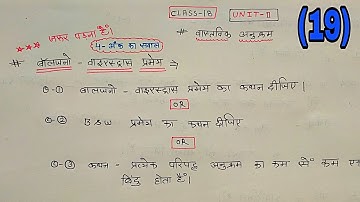 CLASS-1B UNIT-II (19)
*** जरूर पढ़ना है। # वास्तविक अनुक्रम
4-अंक का सवाल
# बोलजानो - वाइरस्ट्रास प्रमेय ⇒
Q-① बोलजानो - वाइरस्ट्रास प्रमेय का कथन दीजिए।
OR
Q-② B&W प्रमेय का कथन दीजिए
OR
Q-③ कथन - प्रत्येक परिबद्ध अनुक्रम का कम से कम एक
बिंदु होता है।